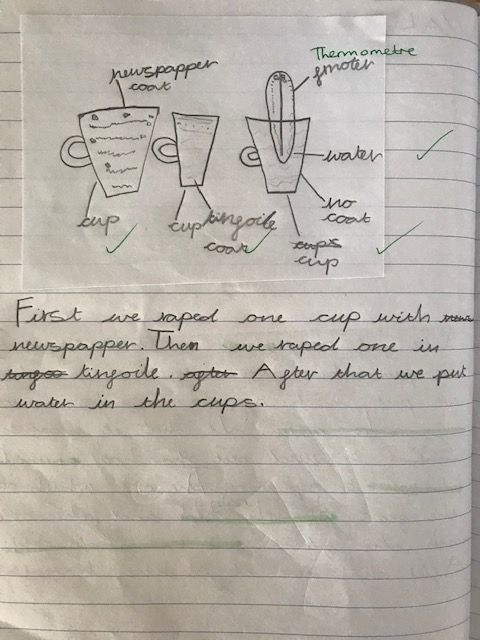 Thermometre
newspapper
coat
fmoter
water
no
coat
cup
cup tingoile
coat
cups
cup
First we raped one cup with news
newspapper. Then we raped one in
tingoile. After that we put
water in the cups.